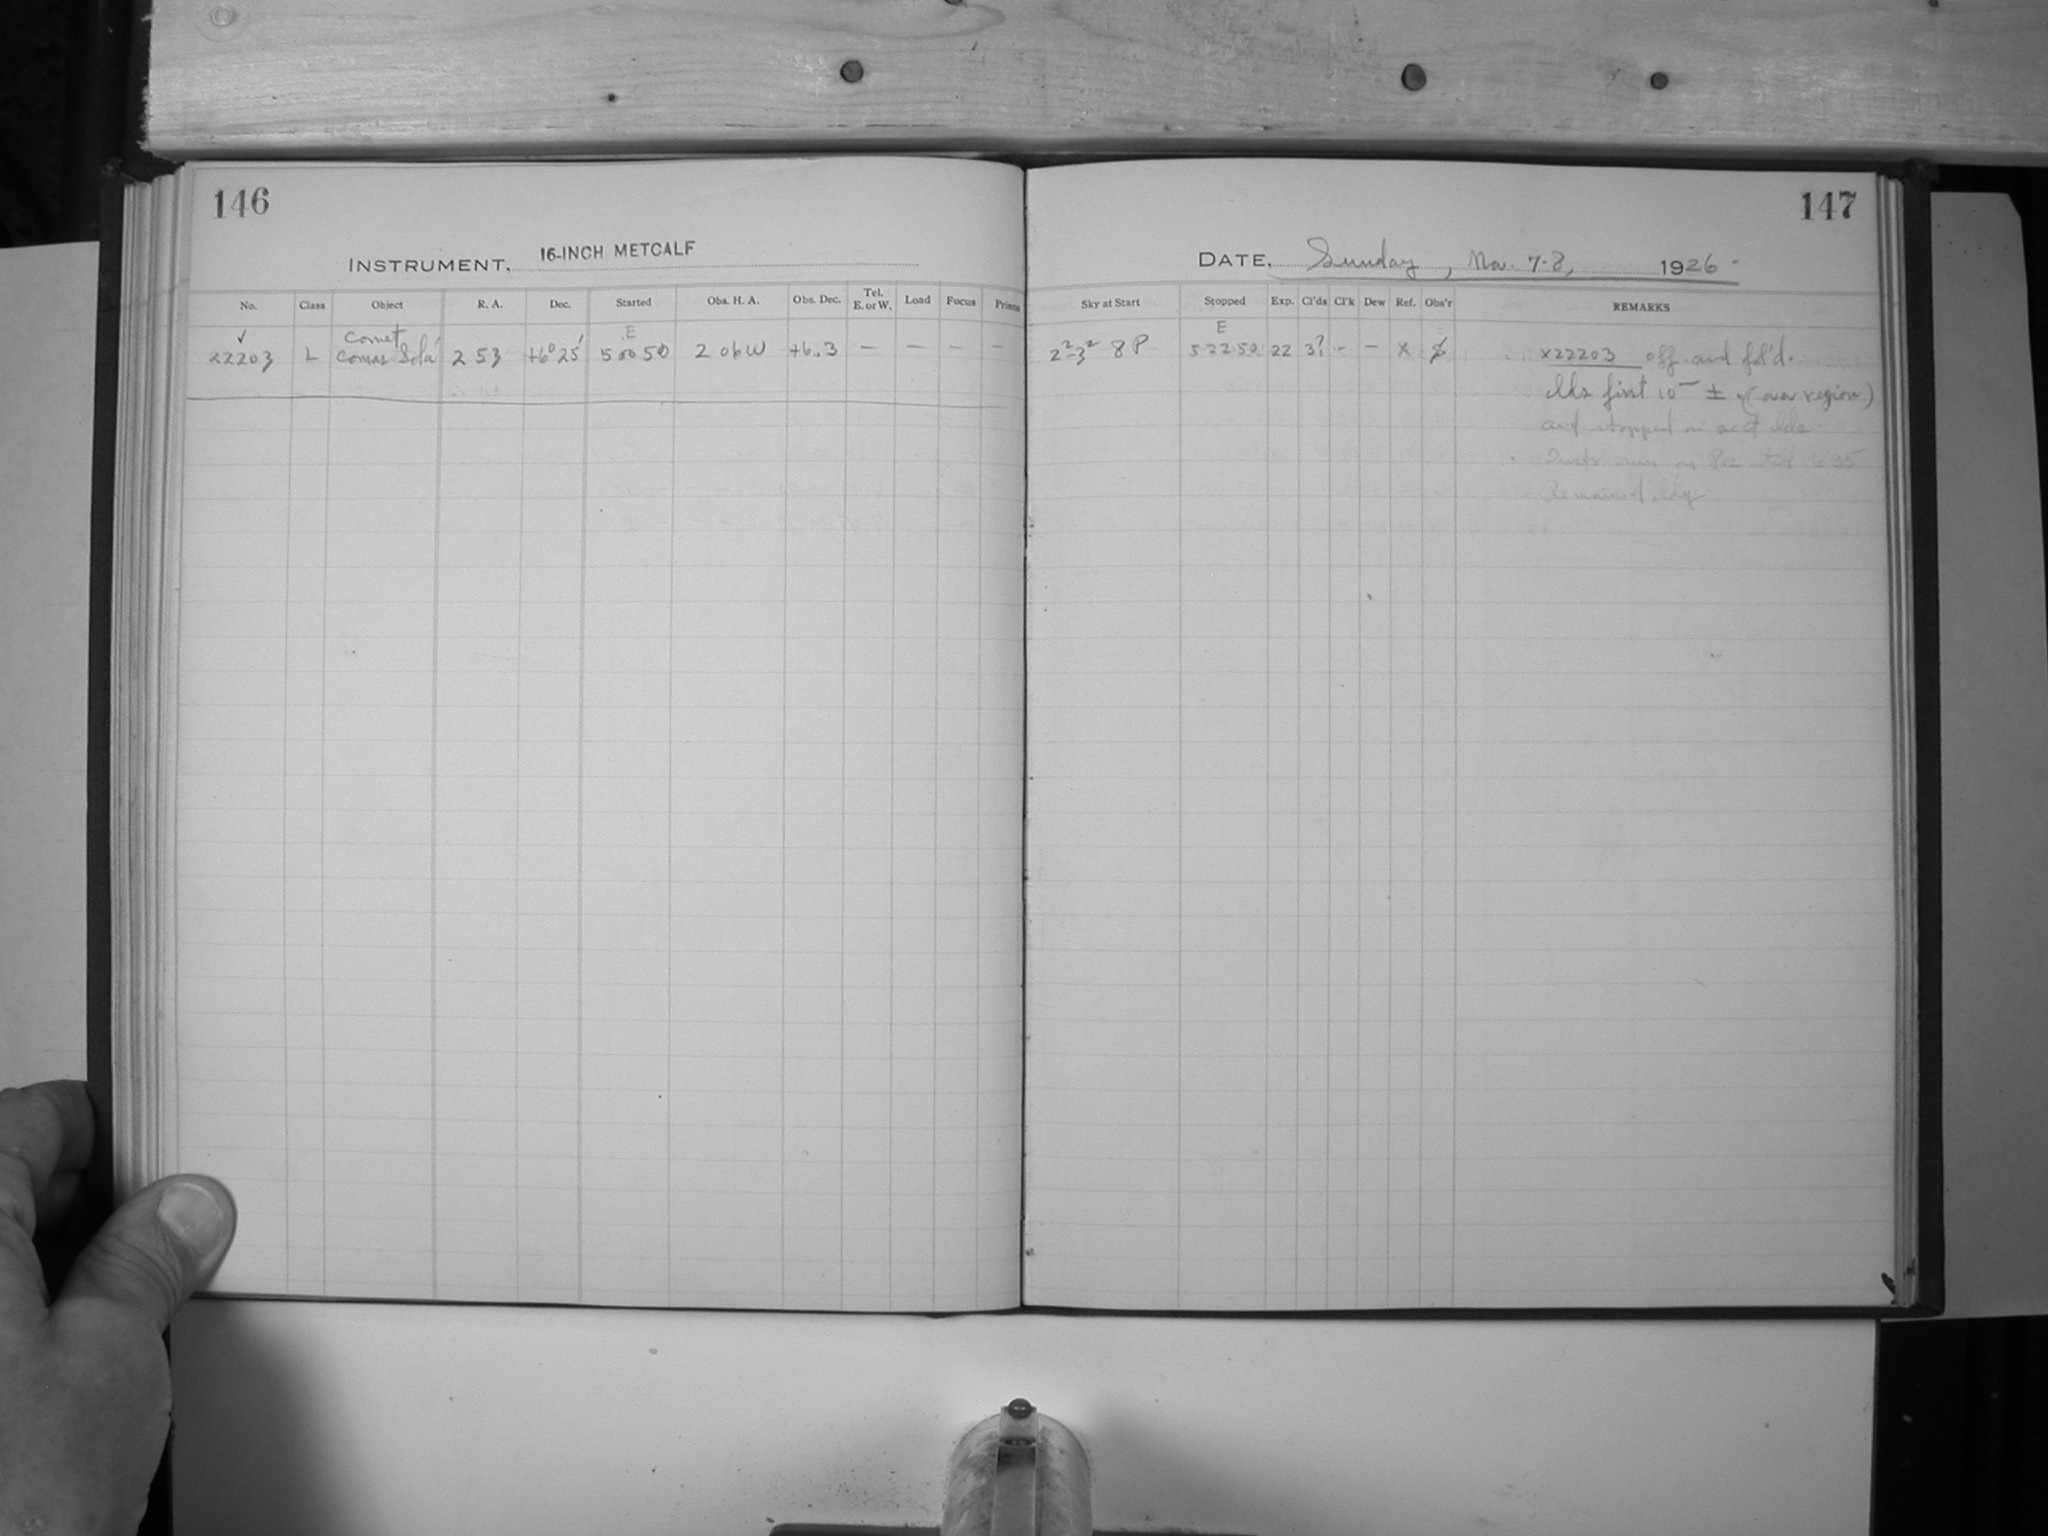 146
INSTRUMENT, 16-INCH METCALF
No. Class Object R. A. Dec. Started Obs. H. A. Obs. Dec. Tel. E. or W. Load Focus Prisms
✓ Comet E
22203 L Comas Solá 2 53 +6° 25' 5 00 50 2 06 W +6.3 — — — —
147
DATE, Sunday, Nov. 7-8, 1926.
Sky at Start Stopped Exp. Cl'ds Cl'k Dew Ref. Obs'r REMARKS
E
2²-3² 8 P 5 22 50 22 3? - — x x22203 off and fol'd.
Clds first 10 ± (over region)
and stopped on acct clds
6 35
Remained cldy